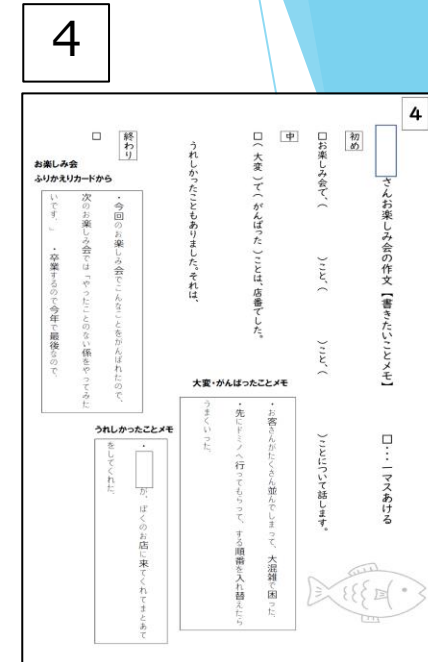 4
4
さんお楽しみ会の作文【書きたいことメモ】
□・・・一マスあける
初め
□お楽しみ会で、（　　　）こと、（　　　）こと、（　　　）ことについて話します。
中
□（大変）で（がんばった）ことは、店番でした。
大変・がんばったことメモ
・お客さんがたくさん並んでしまって、大混雑で困った。
・先にドミノへ行ってもらって、する順番を入れ替えたら
うまくいった。
うれしかったこともありました。それは、
うれしかったことメモ
・
が、ぼくのお店に来てくれてまとあて
をしてくれた。
終わり
□
お楽しみ会
ふりかえりカードから
・今回のお楽しみ会でこんなことをがんばれたので、
次のお楽しみ会では「やったことのない係をやってみた
いです。」
・卒業するので今年で最後なので、